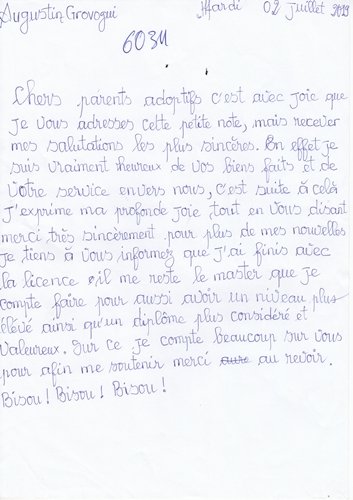 Augustin Grovogui
Mardi 02 juillet 2019
6034
Chers parents adoptifs c'est avec joie que
je vous adresses cette petite note, mais recever
mes salutations les plus sincères. En effet je
suis vraiment heureux de vos biens faits et de
votre service envers nous, c'est suite à celà
j'exprime ma profonde joie tout en vous disant
merci très sincèrement pour plus de mes nouvelles
je tiens à vous informez que j'ai finis avec
la licence il me reste le master que je
compte faire pour aussi avoir un niveau plus
élévé ainsi qu'un diplôme plus considéré et
valeureux. Sur ce je compte beaucoup sur vous
pour afin me soutenir merci au revoir.
Bisou ! Bisou ! Bisou !